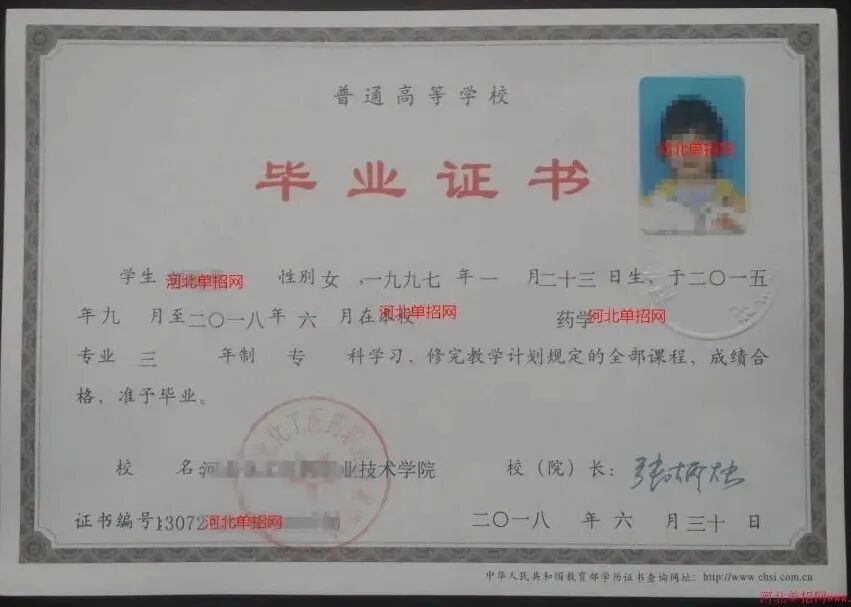 普通高等学校
河北单招网
毕业证书
学生 河北单招网 性别 女 ，一九九七 年 一 月 二十三 日生，于 二〇一五
年 九 月至 二〇一八 年 六 月在本校 河北单招网 药学 河北单招网
专业 三 年制 专 科学习，修完教学计划规定的全部课程，成绩合
格，准予毕业。
化工医药职
校 名： 业技术学院 校（院）长：
证书编号：13072 河北单招网 二〇一八 年 六 月 三十 日
中华人民共和国教育部学历证书查询网址：http://www.chsi.com.cn
河北单招网www.